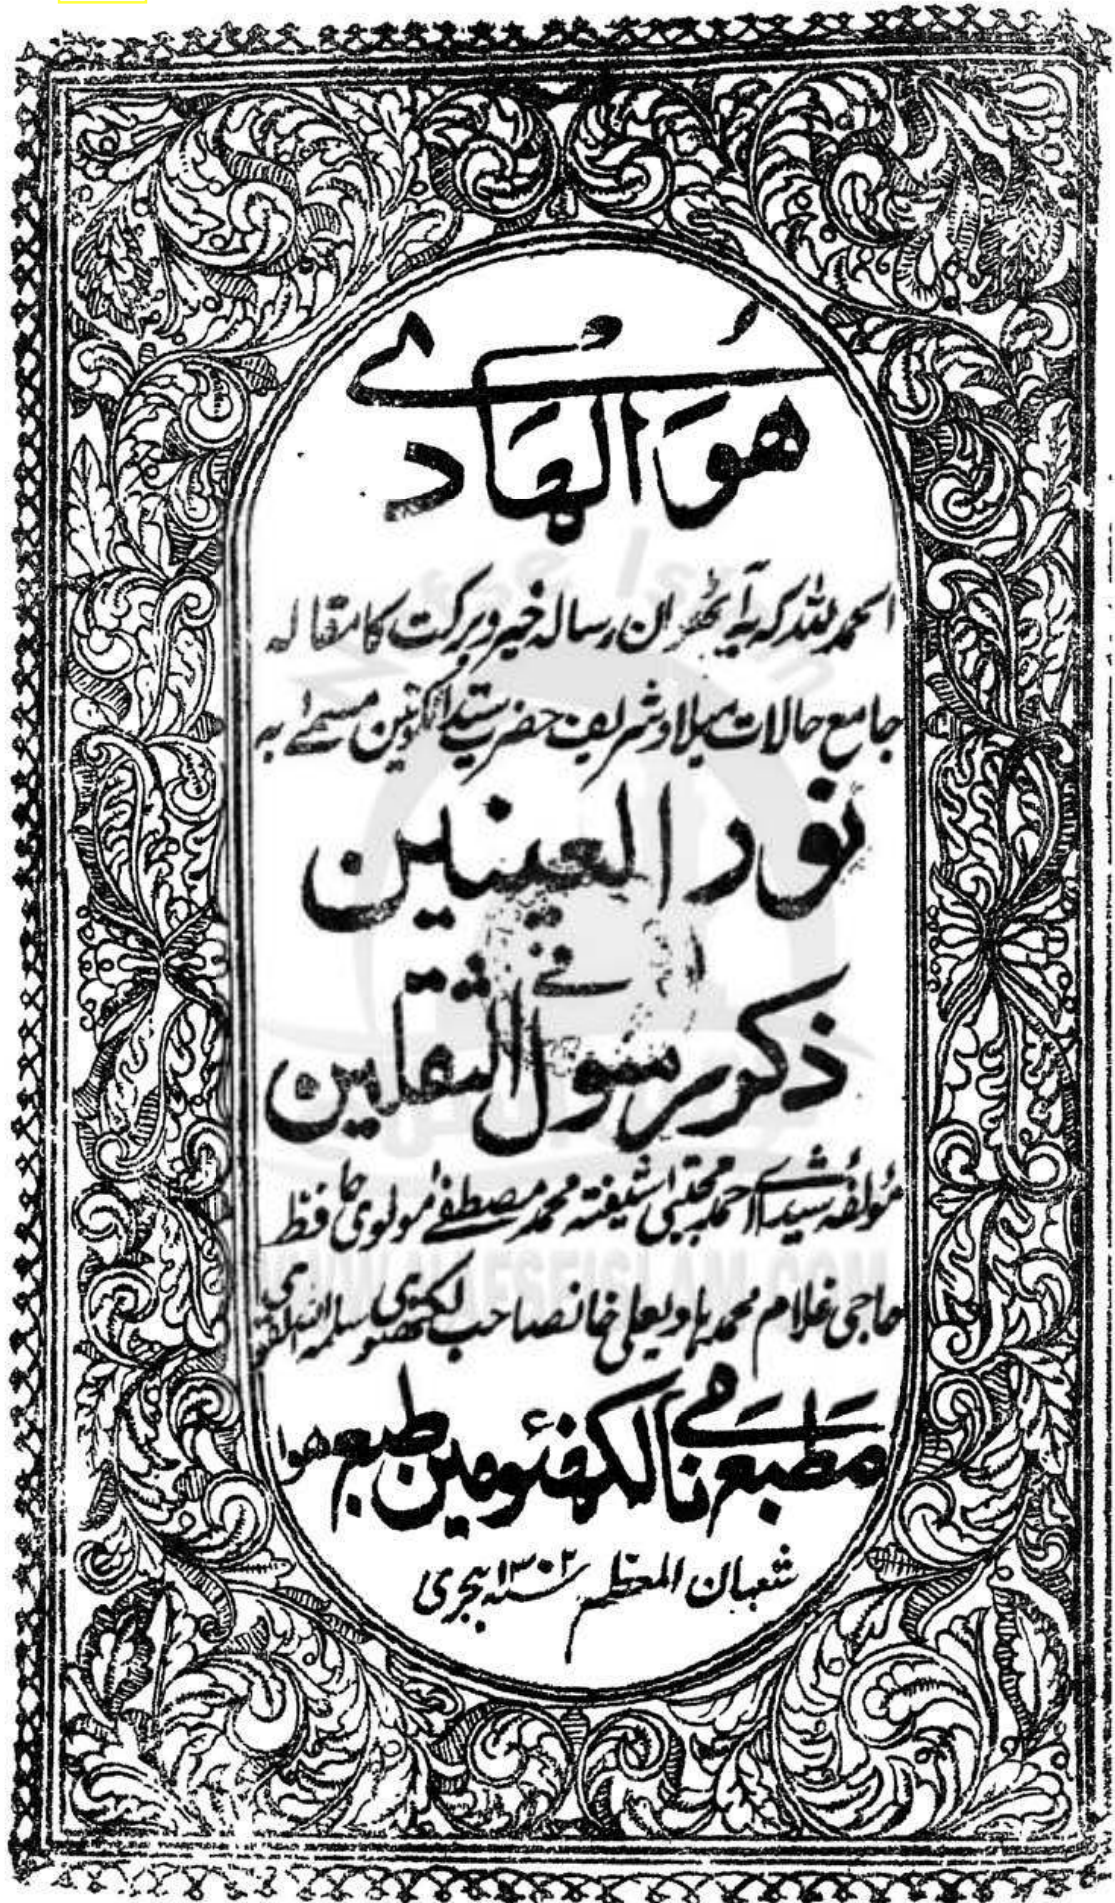 هُوَ الْهَادِي
الحمد للہ کہ یہ آٹھواں رسالہ خیر و برکت کا مقالہ
جامع حالات میلاد شریف حضرت سید الکونین مسمیٰ بہ
نور العینین
فے
ذکر رسول الثقلین
مؤلفہ شیدائے احمد مجتبیٰ شیفتہ محمد مصطفےٰ مولوی حافظ
حاجی غلام محمد ہادیعلی خانصاحب لکھنوی سلمہ اللہ القوی
مطبع نامے لکھنؤ مین طبع ہوا
شعبان المعظم سنہ ۱۳۰۲ ہجری
WWW.NAFSEISLAM.COM